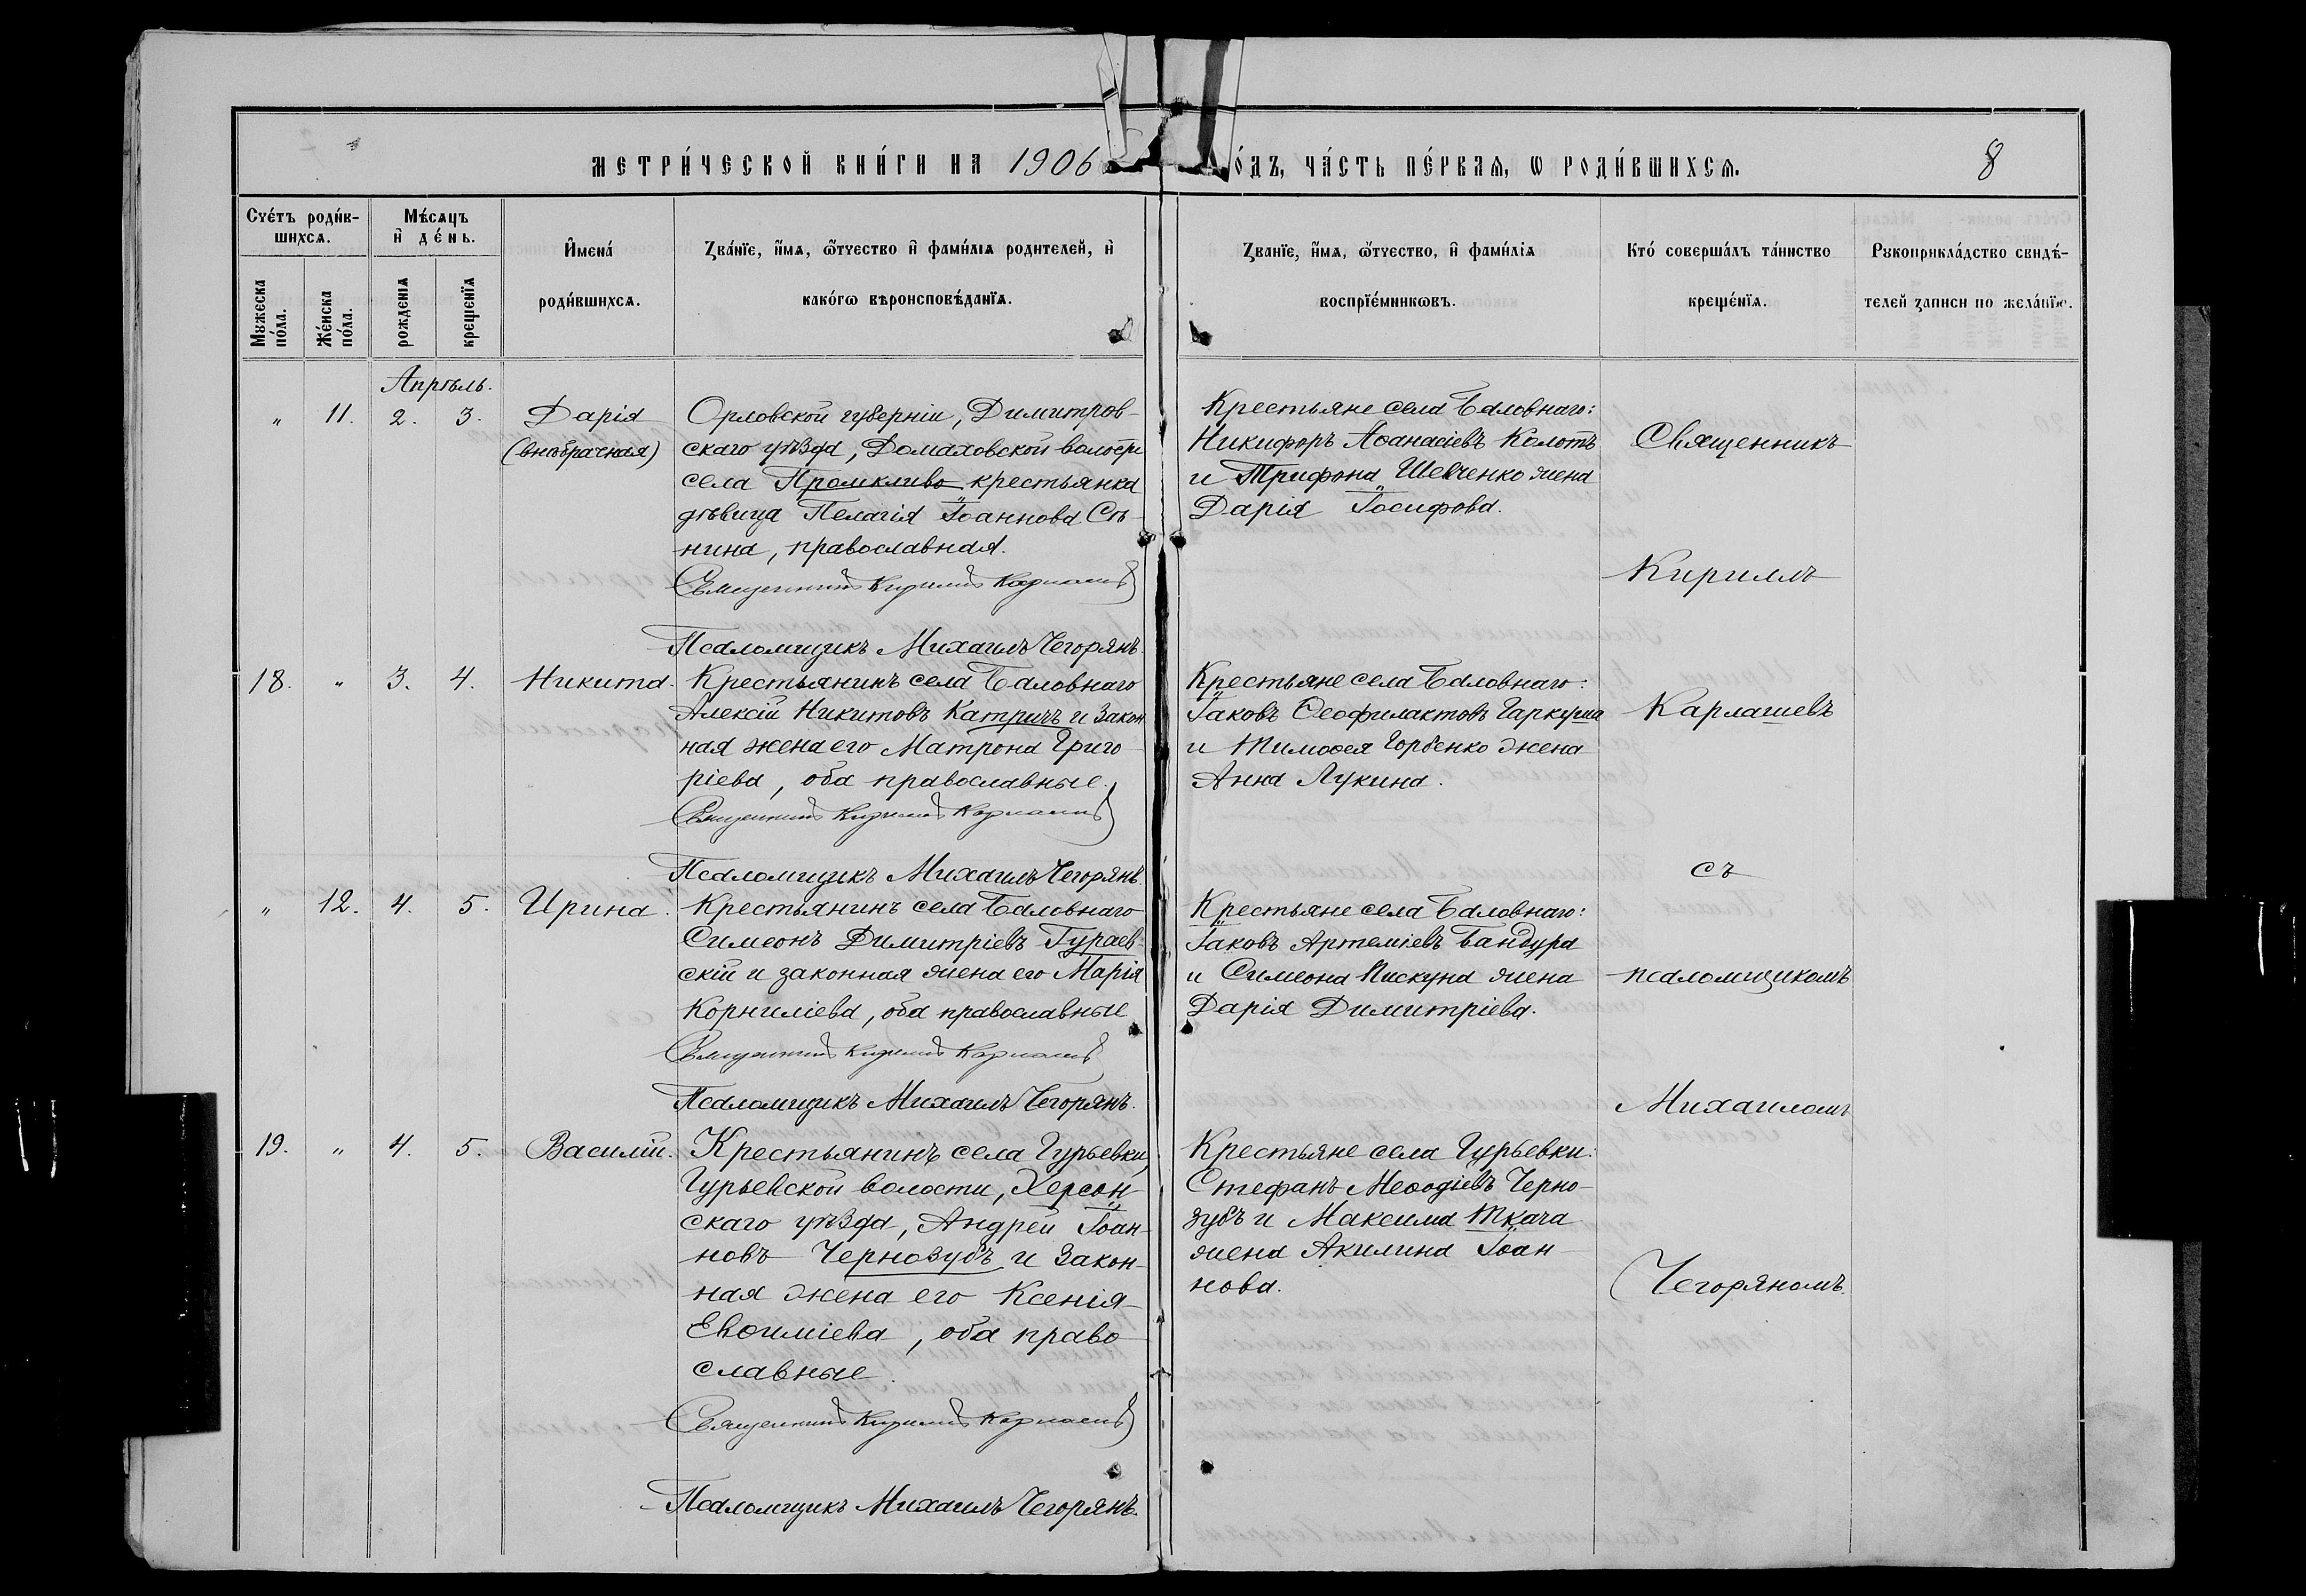 МЕТРИ́ЧЕСКОЙ КНИ́ГИ НА 1906 ОДЪ, ЧА́СТЬ ПЕ́РВАѦ, Ѡ РОДИ́ВШИХСѦ.
8
Сче́тъ роди́в-
шихсѧ.
Мѣ́сѧцъ
и҆ де́нь.
Мꙋжеска
по́ла.
Же́нска
по́ла.
рожденїѧ
крещенїѧ
И҆мена́
роди́вшихсѧ.
Зва́нїе, и҆́мѧ, ѻ҆́тчество и҆ фами́лїѧ родителей, и҆
како́гѡ вѣроисповѣ́данїѧ.
Зва́нїе, и҆́мѧ, ѻ҆́тчество, и҆ фами́лїѧ
воспрїе́мниковъ.
Кто́ соверша́лъ та́инство
креще́нїѧ.
Рꙋкоприкла́дство свидѣ́-
телей записи по жела́нїю.
Апрѣль.
„ 11. 2. 3. Дарія
(внѣбрачная)
Орловской губерніи, Димитров-
скаго уѣзда, Домаховской волости
села Промклево крестьянка
дѣвица Пелагія Іоаннова Сѣ-
нина, православная.
Священникъ Кириллъ Карлашевъ
Псаломщикъ Михаилъ Чегорянъ.
Крестьяне села Баловнаго:
Никифоръ Аѳанасіевъ Колотъ
и Трифона Шевченко жена
Дарія Іосифова.
Священникъ
Кириллъ
18. „ 3. 4. Никита.
Крестьянинъ села Баловнаго
Алексій Никитовъ Катричъ и закон
ная жена его Матрона Григо-
ріева, оба православные.
Священникъ Кириллъ Карлашевъ
Псаломщикъ Михаилъ Чегорянъ.
Крестьяне села Баловнаго:
Іаковъ Ѳеофилактовъ Гаркуша
и Тимоѳея Горбенко жена
Анна Лукина.
Карлашевъ
съ
„ 12. 4. 5. Ирина.
Крестьянинъ села Баловнаго
Симеонъ Димитріевъ Гураев-
скій и законная жена его Марія
Корниліева, оба православные
Священникъ Кириллъ Карлашевъ
Псаломщикъ Михаилъ Чегорянъ.
Крестьяне села Баловнаго:
Іаковъ Артеміевъ Бандура
и Симеона Пискуна жена
Дарія Димитріева.
псаломщикомъ
Михаиломъ
19. „ 4. 5. Василій.
Крестьянинъ села Гурьевки,
Гурьевской волости, Херсон-
скаго уѣзда, Андрей Іоан-
новъ Чернозубъ и закон-
ная жена его Ксенія
Евѳиміева, оба право-
славные.
Священникъ Кириллъ Карлашевъ
Псаломщикъ Михаилъ Чегорянъ.
Крестьяне села Гурьевки:
Стефанъ Меѳодіевъ Черно-
зубъ и Максима Ткача
жена Акилина Іоан-
нова.
Чегоряномъ.